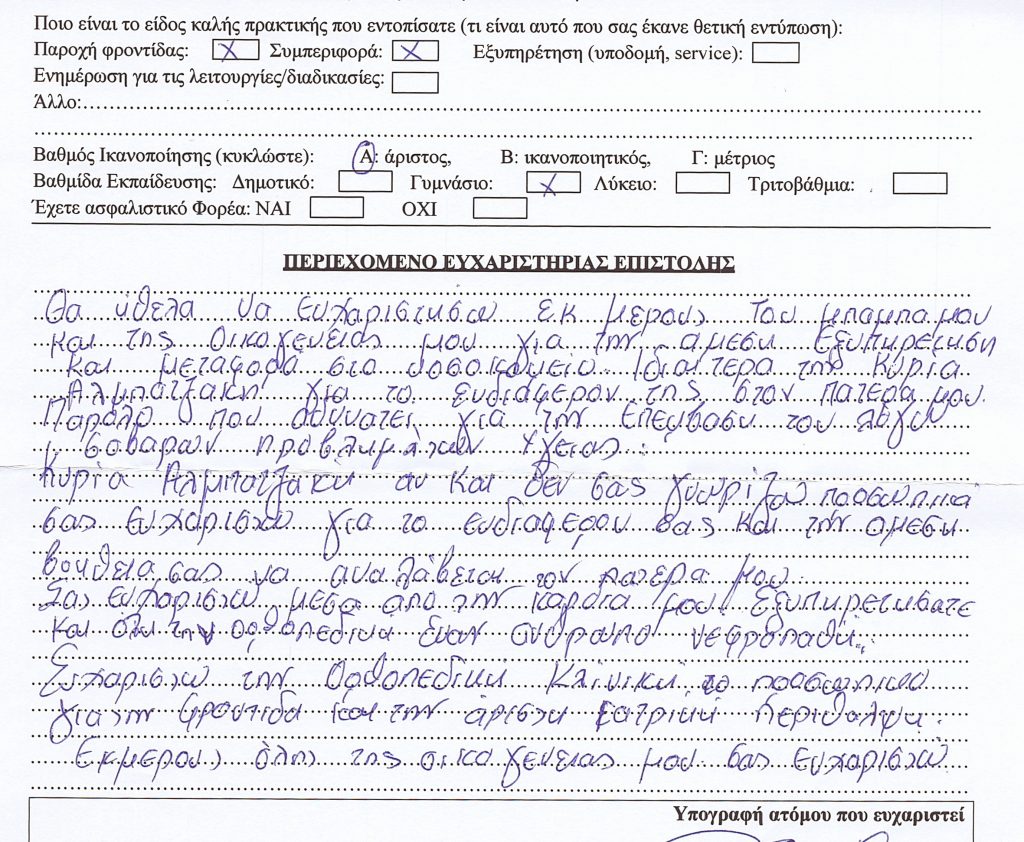 Ποιο είναι το είδος καλής πρακτικής που εντοπίσατε (τι είναι αυτό που σας έκανε θετική εντύπωση):
Παροχή φροντίδας: X Συμπεριφορά: X Εξυπηρέτηση (υποδομή, service):
Ενημέρωση για τις λειτουργίες/διαδικασίες:
Άλλο:
Βαθμός Ικανοποίησης (κυκλώστε): Α: άριστος, Β: ικανοποιητικός, Γ: μέτριος
Βαθμίδα Εκπαίδευσης: Δημοτικό: Γυμνάσιο: X Λύκειο: Τριτοβάθμια:
Έχετε ασφαλιστικό Φορέα: ΝΑΙ ΟΧΙ
ΠΕΡΙΕΧΟΜΕΝΟ ΕΥΧΑΡΙΣΤΗΡΙΑΣ ΕΠΙΣΤΟΛΗΣ
Θα ύθελα να ευχαριστισω εκ μερους του μπαμπα μου
και της οικογενειας μου για την αμεσυ Εξυπηρετιση
και μεταφορά στο νοσοκομειο. Ιδιαιτερα την Κυρία
Αλμπατζακη για το ενδιαφερον της στον πατερα μου.
Παρολο που αδυνατει για την επεμβασυ του λόγου
σοβαρων προβλυματων Υγειας.
Κυρία Αλμπατζακυ αν και δεν σας γνωριζω προσωπικα
σας ευχαριστω για το ενδιαφερον σας και την αμεσυ
βουθεια σας να αναλάβεται τον πατερα μου.
Σας ευχαριστω μεσα απο την καρδια μου. Εξυπηρετισατε
και ολυ την ορθοπεδικυ εναν ανθρωπο νεφροπαθυ.
Ευχαριστω την Ορθοπεδικυ Κλινικυ, το προσωπικο
για την φροντιδα και την αριστυ ιατρικυ περιθαλψυ.
Εκμερους ολης της οικογενειας μου σας ευχαριστω
Υπογραφή ατόμου που ευχαριστεί